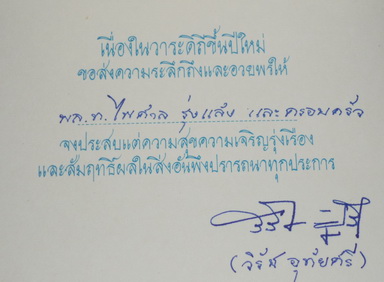 เนื่องในวาระดิถีขึ้นปีใหม่
ขอส่งความระลึกถึงและอวยพรให้
พล.ท. ไพศาล รุ่งแสง และครอบครัว
จงประสบแต่ความสุขความเจริญรุ่งเรือง
และสัมฤทธิ์ผลในสิ่งอันพึงปรารถนาทุกประการ
(วิรัช อุทัยศรี)